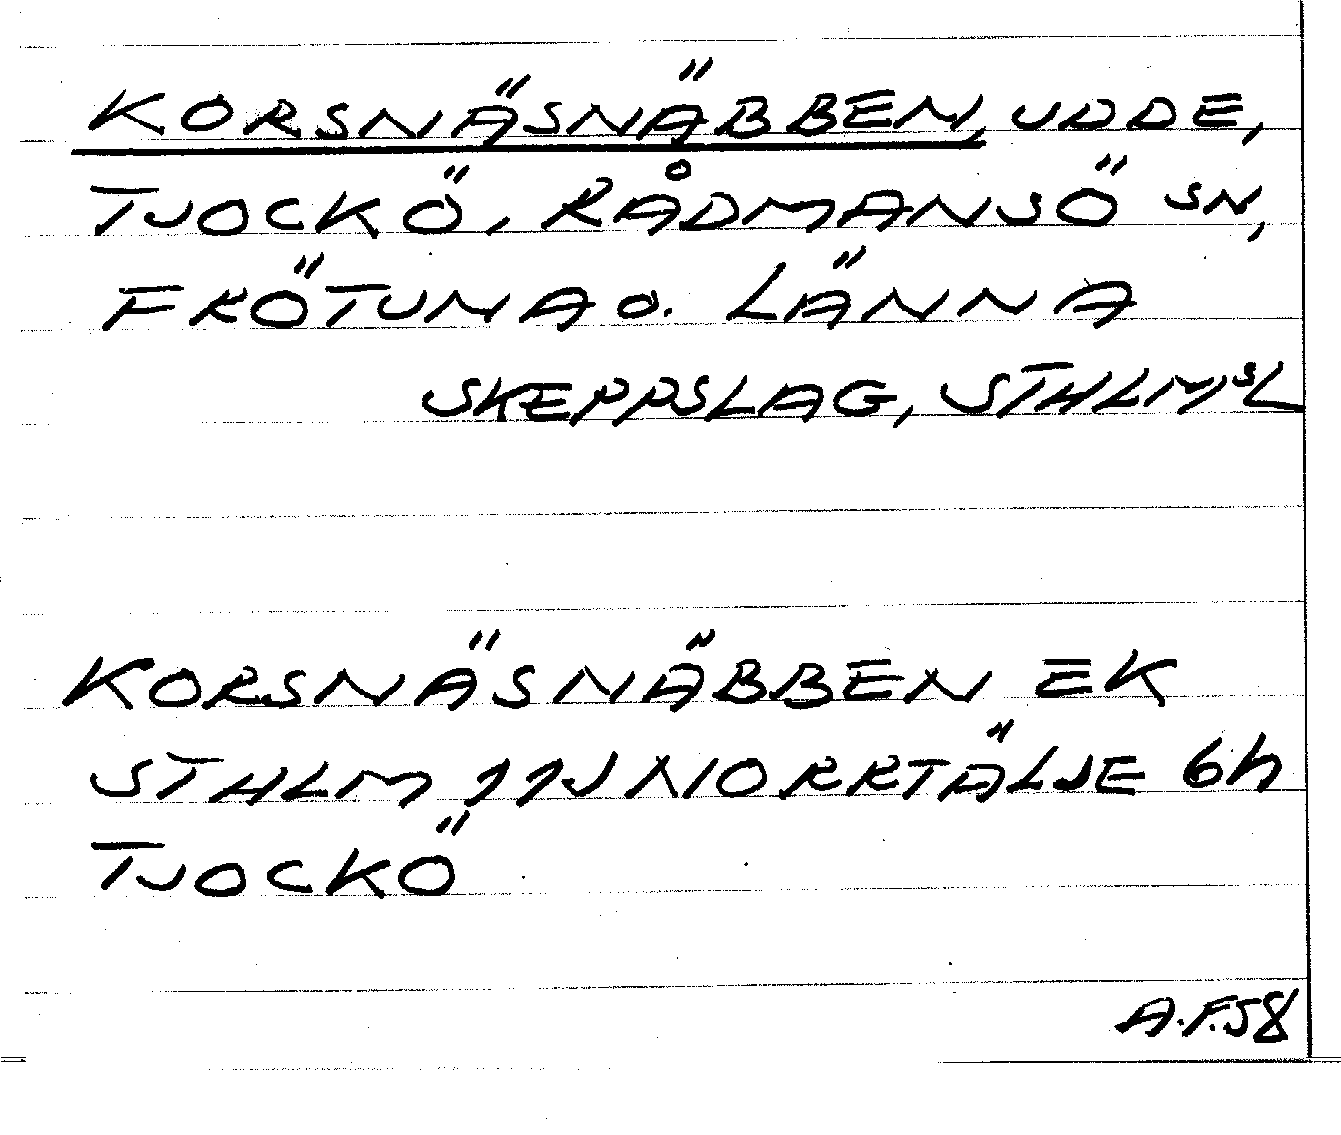 KORSNÄSNÄBBEN, UDDE,
TJOCKÖ, RÅDMANSÖ SN,
FRÖTUNA O. LÄNNA
SKEPPSLAG, STHLMSL
KORSNÄSNÄBBEN EK
STHLM 11J NORRTÄLJE 6h
TJOCKÖ
A.F.58